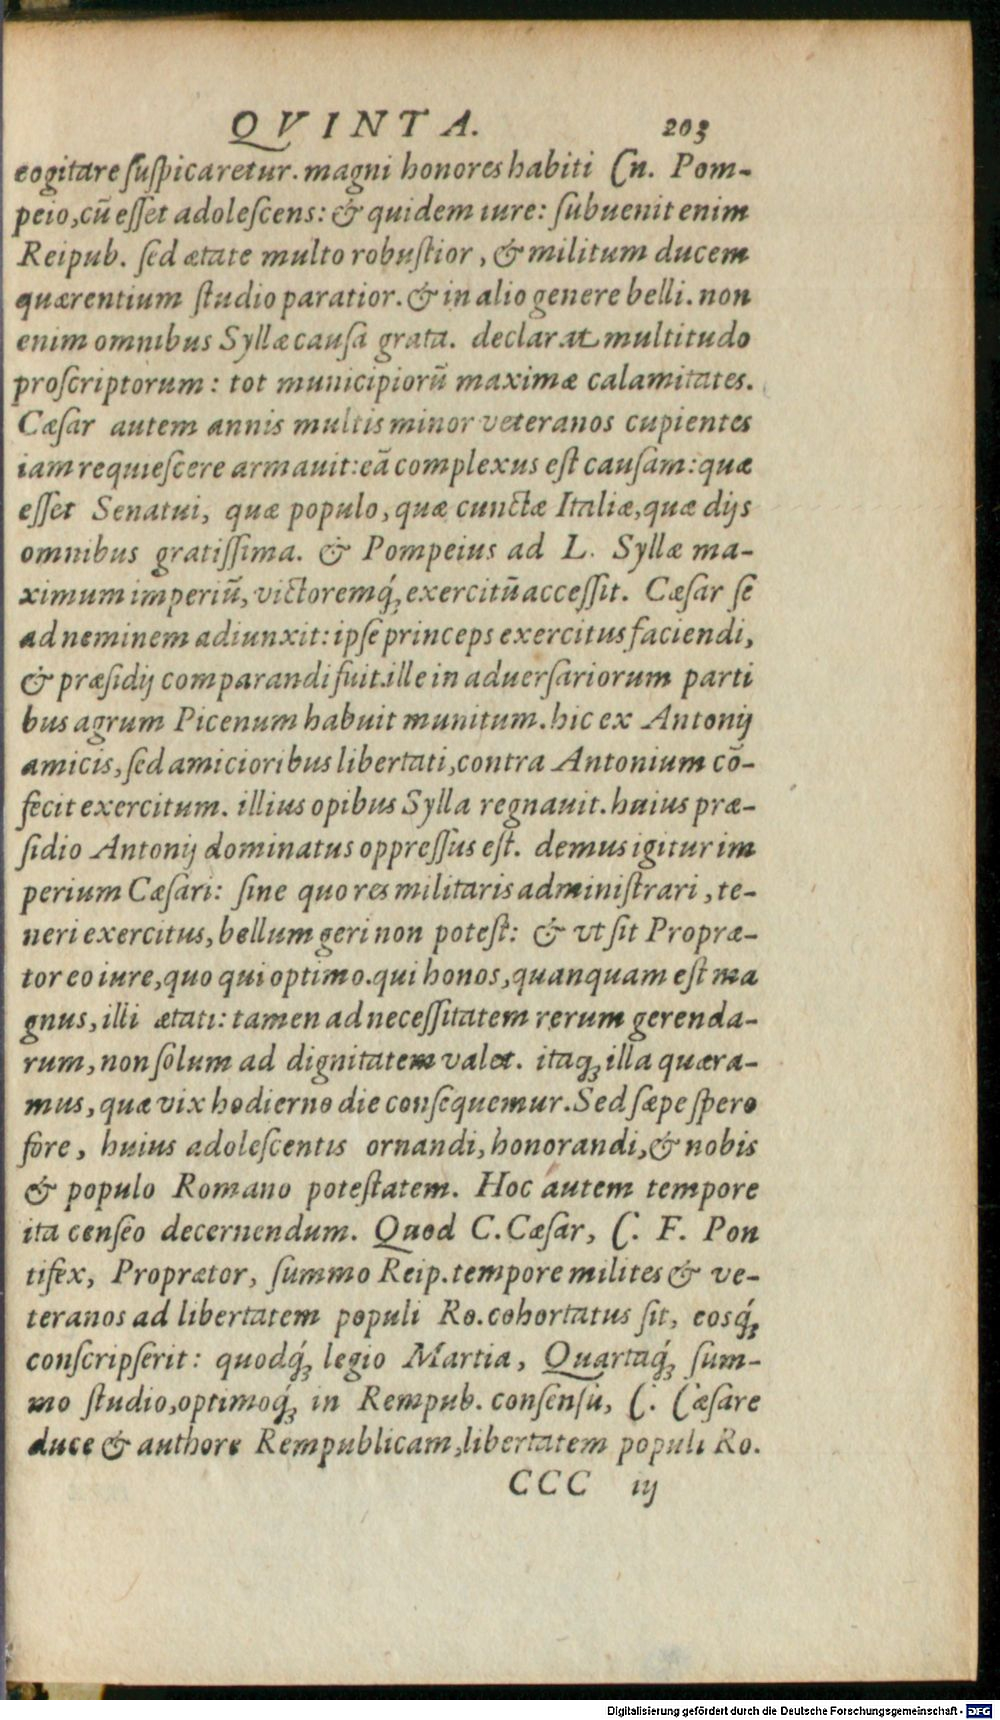 QVINTA. 203
cogitare ſuſpicaretur. magni honores habiti Cn. Pom-
peio, cũ eſſet adoleſcens: & quidem iure: ſubuenit enim
Reipub. ſed ætate multo robuſtior, & militum ducem
quærentium ſtudio paratior. & in alio genere belli. non
enim omnibus Syllæ cauſa grata. declarat multitudo
proſcriptorum: tot municipiorũ maximæ calamitates.
Cæſar autem annis multis minor veteranos cupientes
iam requieſcere armauit: eã complexus eſt cauſam: quæ
eſſet Senatui, quæ populo, quæ cunctæ Italiæ, quæ dijs
omnibus gratiſſima. & Pompeius ad L. Syllæ ma-
ximum imperiũ, victoremq́; exercitũ acceſſit. Cæſar ſe
ad neminem adiunxit: ipſe princeps exercitus faciendi,
& præſidij comparandi fuit. ille in aduerſariorum parti
bus agrum Picenum habuit munitum. hic ex Antonij
amicis, ſed amicioribus libertati, contra Antonium cõ-
fecit exercitum. illius opibus Sylla regnauit. huius præ-
ſidio Antonij dominatus oppreſſus eſt. demus igitur im
perium Cæſari: ſine quo res militaris adminiſtrari, te-
neri exercitus, bellum geri non poteſt: & vt ſit Propræ-
tor eo iure, quo qui optimo. qui honos, quanquam eſt ma
gnus, illi ætati: tamen ad neceſſitatem rerum gerenda-
rum, non ſolum ad dignitatem valet. itaq; illa quæra-
mus, quæ vix hodierno die conſequemur. Sed ſæpe ſpero
fore, huius adoleſcentis ornandi, honorandi, & nobis
& populo Romano poteſtatem. Hoc autem tempore
ita cenſeo decernendum. Quod C. Cæſar, C. F. Pon
tifex, Proprætor, ſummo Reip. tempore milites & ve-
teranos ad libertatem populi Ro. cohortatus ſit, eosq́;
conſcripſerit: quodq́; legio Martia, Quartaq́; ſum-
mo ſtudio, optimoq́; in Rempub. conſenſu, C. Cæſare
duce & authore Rempublicam, libertatem populi Ro.
CCC iij
Digitalisierung gefördert durch die Deutsche Forschungsgemeinschaft - DFG